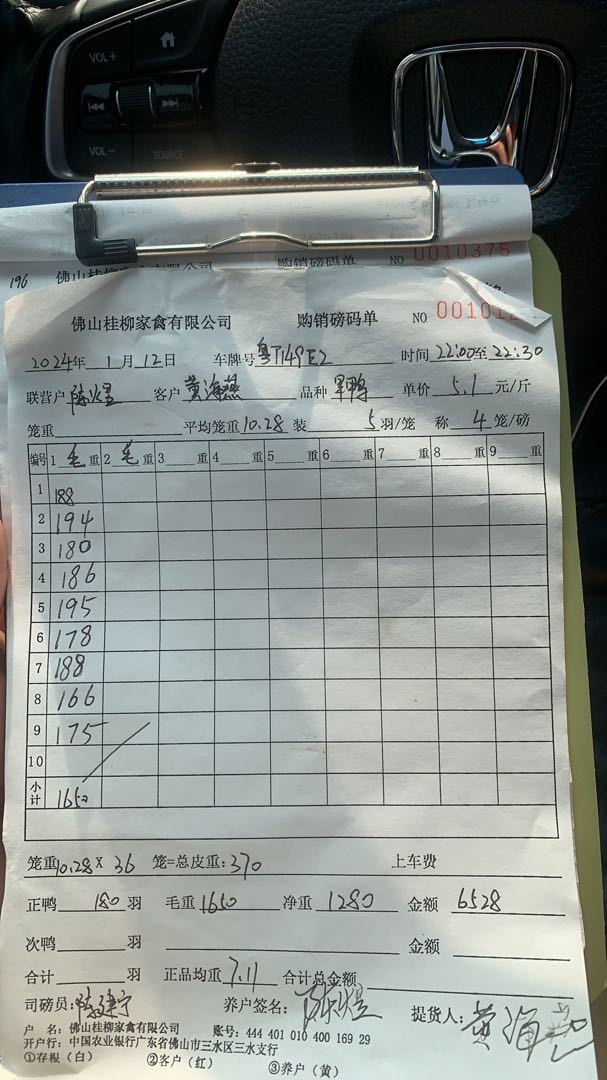 VOL+
VOL-
SOURCE
购销磅码单 NO 0010375
196
佛山桂柳家禽有限公司 购销磅码单 NO 00101
2024年 1月 12日 车牌号 粤T149E2 时间 22:00至 22:30
联营户 陈焜 客户 黄海燕 品种 旱鸭 单价 5.1 元/斤
笼重 平均笼重 10.28 装 5 羽/笼 称 4 笼/磅
编号 1 毛 重 2 毛 重 3 重 4 重 5 重 6 重 7 重 8 重 9 重
1 188
2 194
3 180
4 186
5 195
6 178
7 188
8 166
9 175
10
小计 1650
笼重 10.28 X 36 笼=总皮重: 370 上车费
正鸭 180 羽 毛重 1650 净重 1280 金额 6528
次鸭 羽 金额
合计 羽 正品均重 7.11 合计总金额
司磅员: 陈建宁 养户签名: 陈焜 提货人: 黄海燕
户 名: 佛山桂柳家禽有限公司 账号: 444 401 010 400 169 29
开户行: 中国农业银行广东省佛山市三水区三水支行
①存根(白) ②客户(红) ③养户(黄)